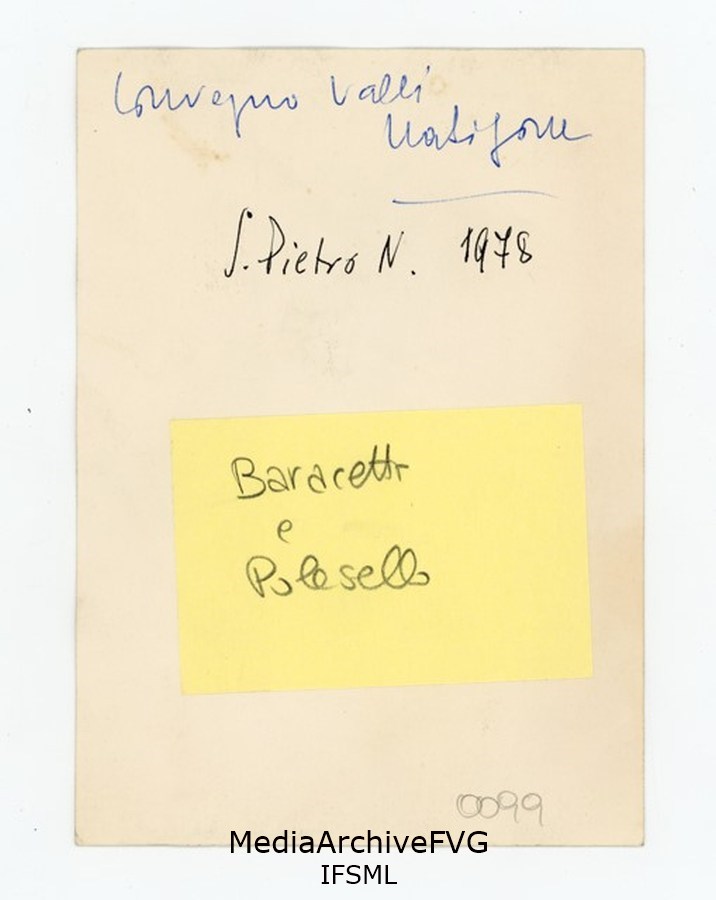 Convegno Valli
Natisone
S. Pietro N. 1978
Baracetti
e
Polesello
0099
MediaArchiveFVG
IFSML